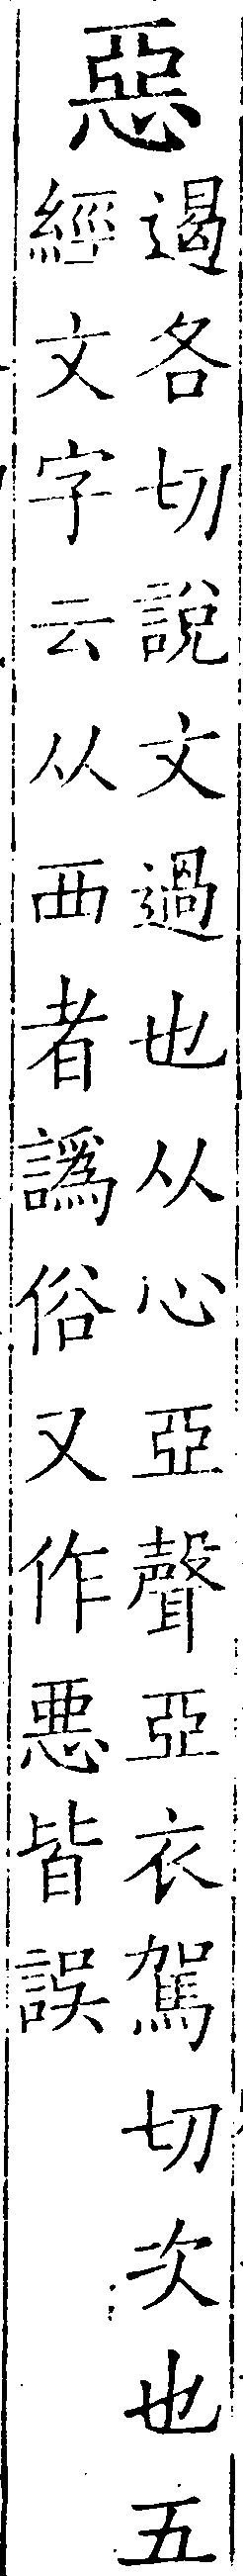 惡
遏各切說文過也从心亞聲亞衣駕切次也五
經文字云从覀者譌俗又作悪皆誤